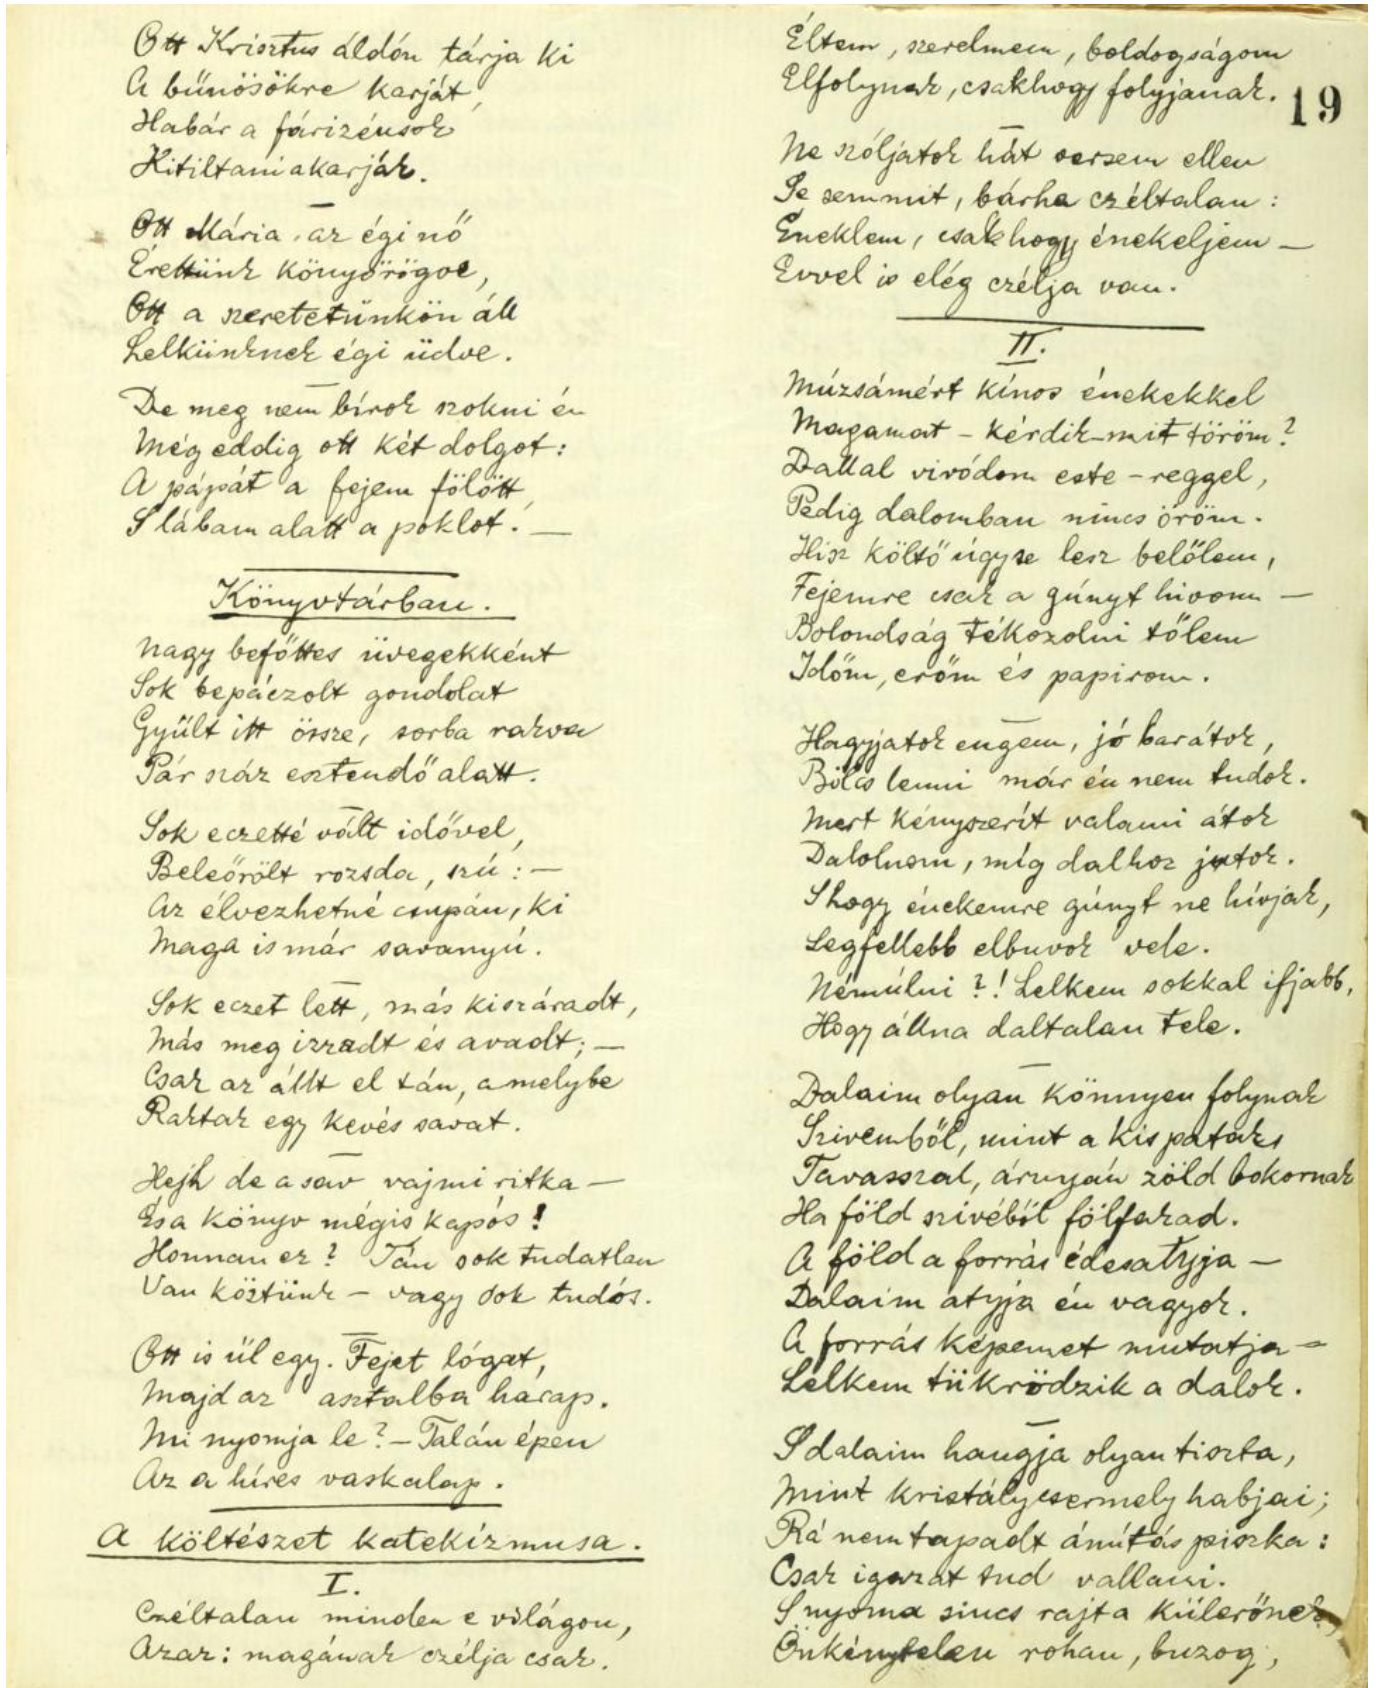 Ott Krisztus áldón tárja ki
A bűnösökre karját,
Habár a fárizéusok
Kitiltani akarják.
Ott Mária, az égi nő
Érettünk könyörögve,
Ott a szeretetünkön áll
Lelkünknek égi üdve.
De meg nem bírok szokni én
Még eddig ott két dolgot:
A pápát a fejem fölött,
S lábam alatt a poklot. —
Könyvtárban.
Nagy befőttes üvegekként
Sok bepáczolt gondolat
Gyűlt itt össze, sorba rakva
Pár száz esztendő alatt.
Sok eczetté vált idővel,
Beleőrölt rozsda, szú: —
Az élvezhetné csupán, ki
Maga is már savanyú.
Sok eczet lett, más kiszáradt,
Más meg izzadt és avadt; —
Csak az állt el tán, a melybe
Raktak egy kevés savat.
Hejh de a sav vajmi ritka —
És a könyv mégis kapós!
Honnan ez? Tán sok tudatlan
Van köztünk — vagy sok tudós.
Ott is ül egy. Fejet lógat,
Majd az asztalba harap.
Mi nyomja le? — Talán épen
Az a híres vaskalap.
A költészet katekizmusa.
I.
Czéltalan minden e világon,
Azaz: magának czélja csak.
Éltem, szerelmem, boldogságom
Elfolynak, csakhogy folyjanak.
19
Ne szóljatok hát versem ellen
Se semmit, bárha czéltalan:
Éneklem, csak hogy énekeljem —
Evvel is elég czélja van.
II.
Múzsámért kínos énekekkel
Magamat - kérdik - mit töröm?
Dallal vivódom este - reggel,
Pedig dalomban nincs öröm.
Hisz költő úgyse lesz belőlem,
Fejemre csak a gúnyt hivom —
Bolondság tékozolni tőlem
Időm, erőm és papirom.
Hagyjatok engem, jó barátok,
Bölcs lenni már én nem tudok.
Mert kényszerít valami átok
Dalolnom, míg dalhoz jutok.
S hogy énekemre gúnyt ne hívjak,
Legfellebb elbuvok vele.
Némúlni?! Lelkem sokkal ifjabb,
Hogy állna daltalan tele.
Dalaim olyan könnyen folynak
Szivemből, mint a kis patak
Tavasszal, árnyán zöld bokornak
Ha föld szivéből fölfakad.
A föld a forrás édesatyja —
Dalaim atyja én vagyok.
A forrás képemet mutatja —
Lelkem tükrödzik a dalok.
S dalaim hangja olyan tiszta,
Mint kristálycsermely habjai;
Rá nem tapadt ámítás piszka:
Csak igazat tud vallani.
S nyoma sincs rajta külerőnek,
Önkénytelen rohan, buzog,